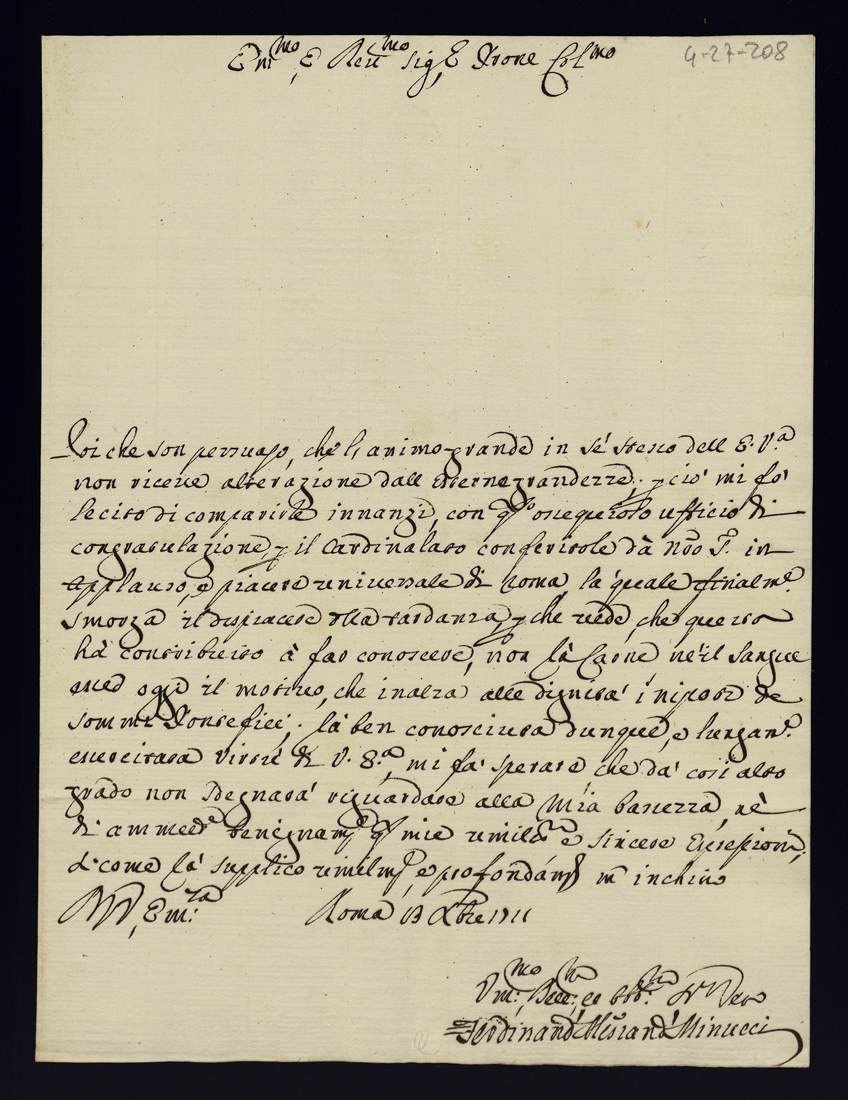 Em.mo, E Reu.mo Sig, E Prone Col.mo
4-27-208
Poi che son persuaso, che l, animo grande in sé stesso dell E. V.a
non riceue alterazione dall esterne grandezze, p ciò mi fò
lecito di comparirle innanzi, con q.to ossequioso ufficio di
congratulazione, p il Cardinalato conferitole dà Nro S.re in
applauso, e piacere uniuersale di Roma, la quale finalm.e
smorza il dispiacere della tardanza, p che uede, che questa
hà contribuito à far conoscere, non là Carne nè il Sangue
oggi il motiuo, che inalza alle dignità i nipoti de
sommi Pontefici; là ben conosciuta dunque, e lungam.e
esercitata Virtù di V. E.a, mi fà sperare che dà così alto
grado non sdegnarà riguardare alla mia bassezza, nè
di ammeter benignam.e q.te mie umiliss.e e sincere espressioni,
di come là supplico umilm.e, e profondam.e m inchino
Em.za Roma 13 Xbre 1711
Vm.mo, Deu.mo, ed Obb.mo Ser.re Vero
Ferdinando Minucci